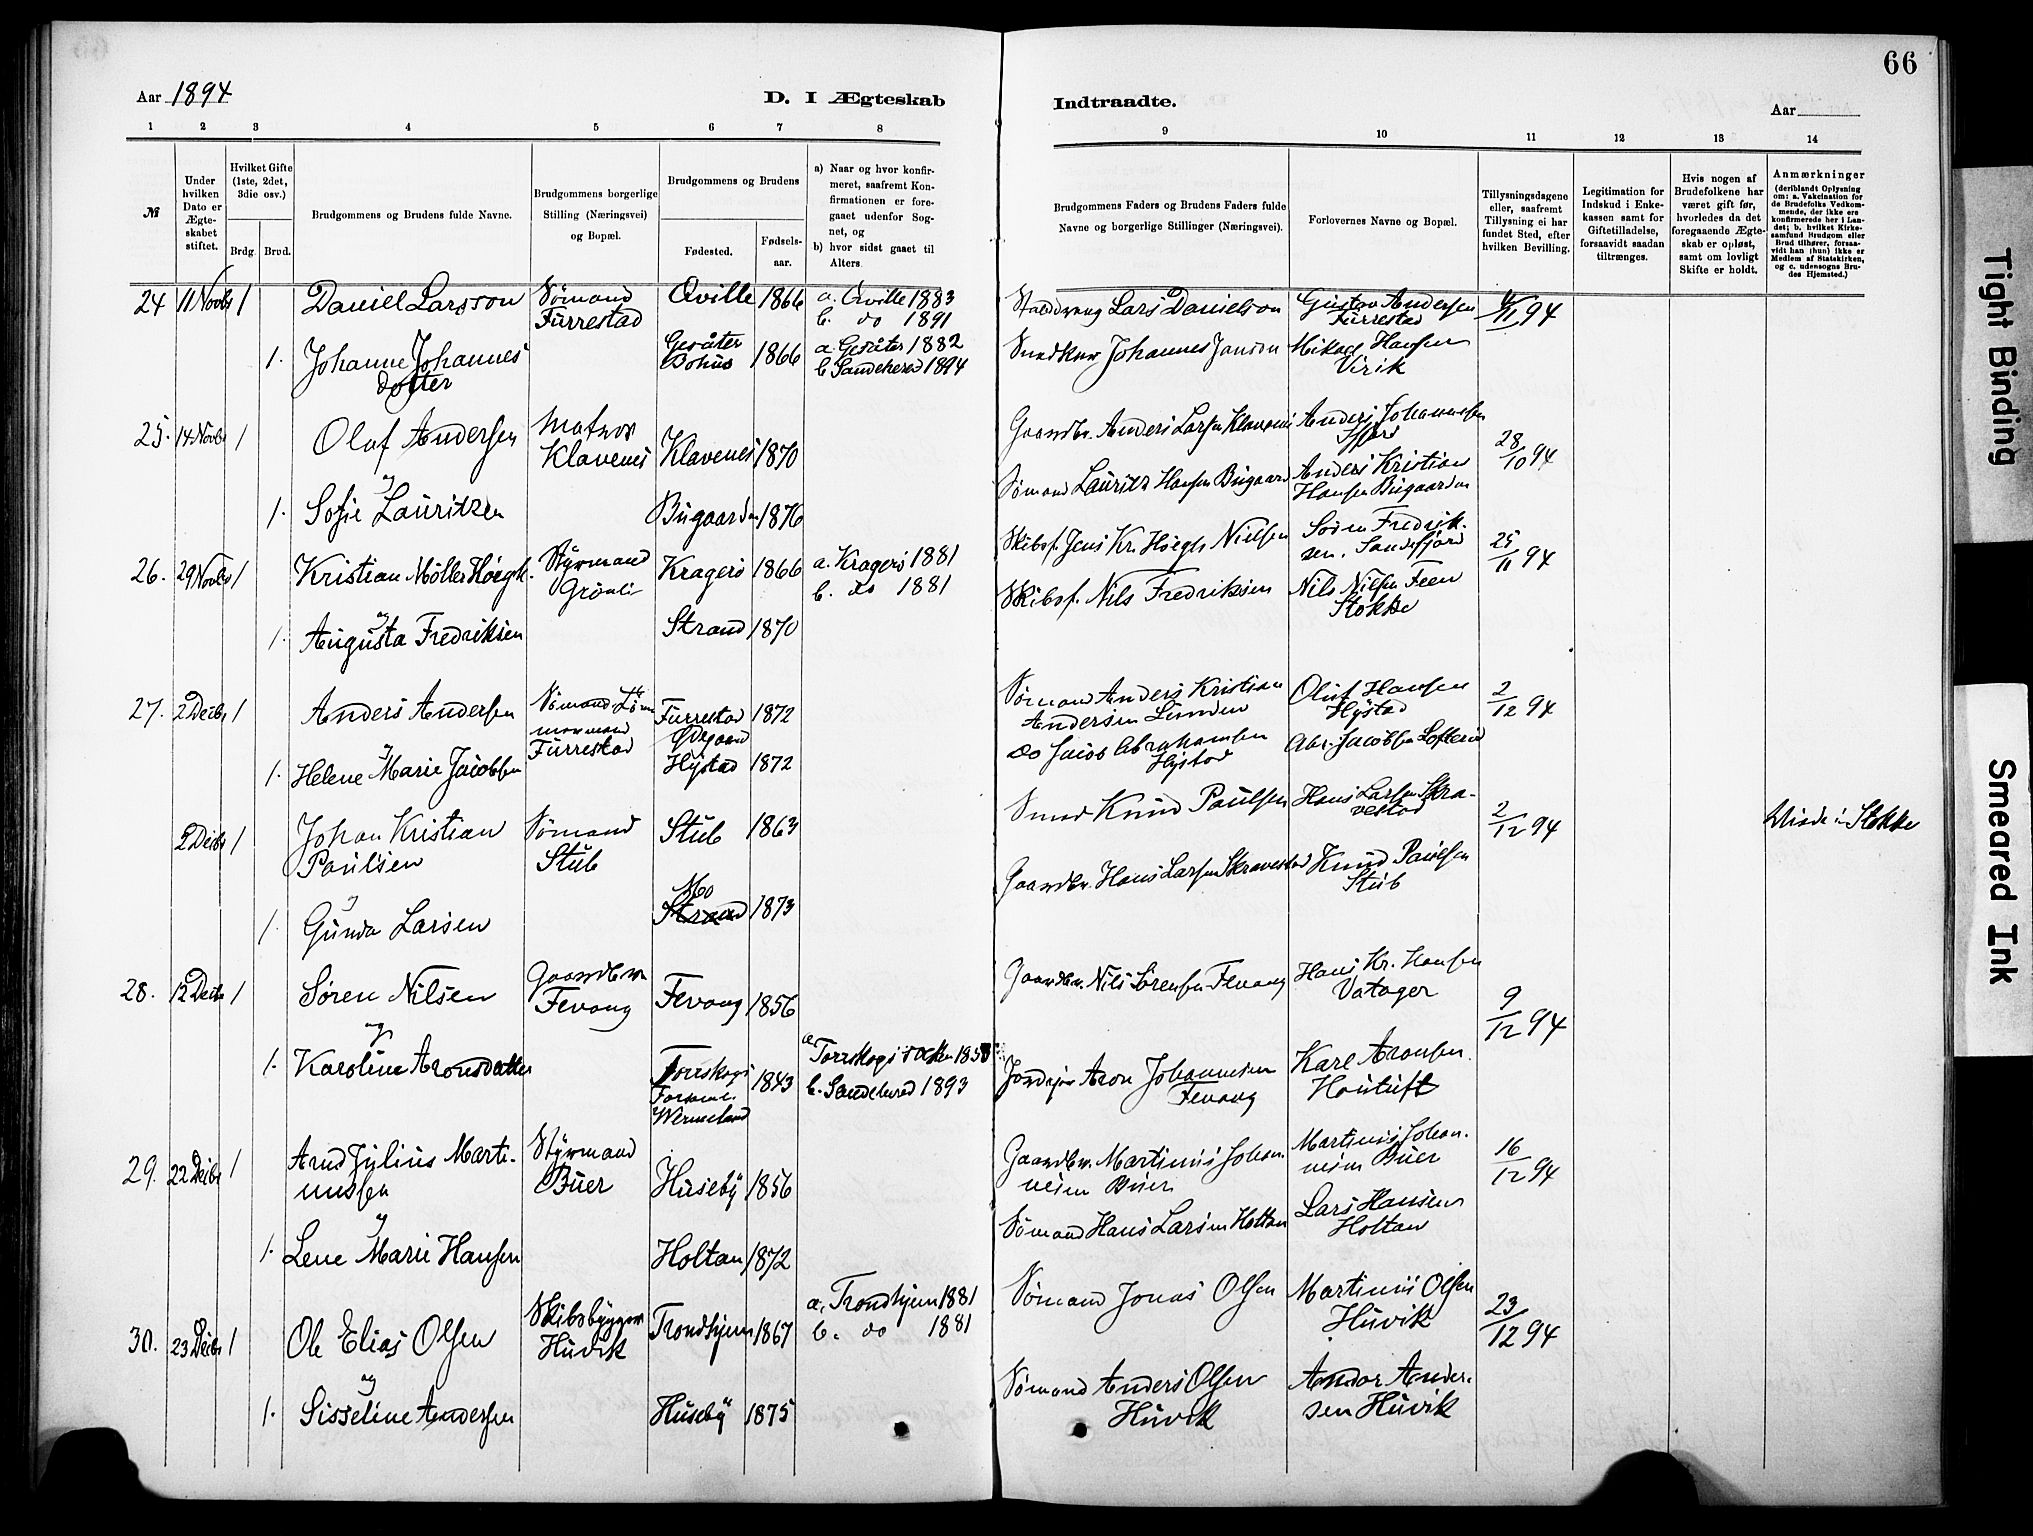 66
Aar 1894
D. I Ægteskab
Indtraadte.
Aar
1 2 3 4 5 6 7 8 9 10 11 12 13 14
№
Under hvilken Dato er Ægteskabet stiftet.
Hvilket Gifte (1ste, 2det, 3die osv.)
Brdg. Brud.
Brudgommens og Brudens fulde Navne.
Brudgommens borgerlige Stilling (Næringsvei) og Bopæl.
Brudgommens og Brudens
Fødested. Fødsels-aar.
a) Naar og hvor konfirmeret, saafremt Konfirmationen er foregaaet udenfor Sognet, og
b) hvor sidst gaaet til Alters.
Brudgommens Faders og Brudens Faders fulde Navne og borgerlige Stillinger (Næringsvei).
Forlovernes Navne og Bopæl.
Tillysningsdagene eller, saafremt Tillysning ei har fundet Sted, efter hvilken Bevilling.
Legitimation for Indskud i Enkekassen samt for Giftetilladelse, forsaavidt saadan tiltrænges.
Hvis nogen af Brudefolkene har været gift før, hvorledes da det foregaaende Ægteskab er opløst, samt om lovligt Skifte er holdt.
Anmærkninger
(deriblandt Oplysning om: a. Vakcination for de Brudefolks Vedkommende, der ikke ere konfirmerede her i Landet; b. hvilket Kirkesamfund Brudgom eller Brud tilhører, forsaavidt han (hun) ikke er Medlem af Statskirken, og c. udensogns Brudes Hjemsted.)
24 11 Novbr 1 Daniel Larsson Sømand Furrestad Qville 1866 a. Qville 1883 b. do 1891 Lars Danielson Gustav Andersen Furrestad 4/11 94
1. Johanne Johannesdotter Gesäter Bohus 1866 a Gesäter 1882 b Sandeherred 1894 Johannes Jonson Mikael Hansen Virik
25. 14 Novbr 1 Olaf Andersen Matros Klavenes Klavenes 1870 Gaardbr. Anders Larsen Klavenes Anders Johannesen 28/10 94
og
1. Sofie Lauritzen Bugaarden 1876 Sømand Lauritz Hansen Bugaard Anders Kristian Hansen Bugaarden
26. 29 Novbr 1 Kristian Møller Høegh. Styrmand Grønli Kragerø 1866 a. Kragerø 1881 b. do 1881 Skibsf. Jens Kr. Høegh Nielsen Søren Fredriksen. Sandefjord 25/11 94
og
1. Augusta Fredriksen Strand 1870 Skibsf. Nils Fredriksen Nils Nilsen Feen Stokke
27. 2 Decbr 1 Anders Andersen Sømand Furrestad Furrestad 1872 Sømand Anders Kristian Andersen Lunden Oluf Hansen Hystad 2/12 94
og
1. Helene Marie Jacobsen Ødegaard Hystad 1872 do Jacob Abrahamsen Hystad Abr. Jacobsen Lofterød
2 Decbr 1 Johan Kristian Paulsen Sømand Stub Stub 1863 Smed Knud Paulsen Hans Larsen Skravestad 2/12 94 Viede i Stokke
og
1. Gunda Larsen Mo Strand 1873 Gaardbr. Hans Larsen Skravestad Knud Paulsen Stub
28. 12 Decbr 1 Søren Nilsen Gaardbr. Fevang Fevang 1856 Gaardbr. Nils Sørensen Fevang Hans Kr. Hansen Vatager 9/12 94
og
1. Karoline Aronsdatter Torrskogs Forsaml. Wermeland 1843 a Torrskogs socken 1858 b. Sandeherred 1893 Aron Johannesen Fevang Karl Aronsen. Hautuft
29. 22 Decbr 1 Arnd Julius Martinussen Styrmand Buer Huseby 1856 Gaardbr. Martinus Johannesen Buer Martinus Johannesen Buer 16/12 94
og
1. Lene Marie Hansen Holtan 1872 Sømand Hans Larsen Holtan Lars Hansen Holtan
30. 23 Decbr 1 Ole Elias Olsen Skibsbygger Huvik Trondhjem 1867 a. Trondhjem 1881 b. do 1881 Sømand Jonas Olsen Martinius Olsen Huvik 23/12 94
og
1. Sisseline Andersen Huseby 1875 Sømand Anders Olsen Huvik Andor Andersen Huvik
Tight Binding
Smeared Ink